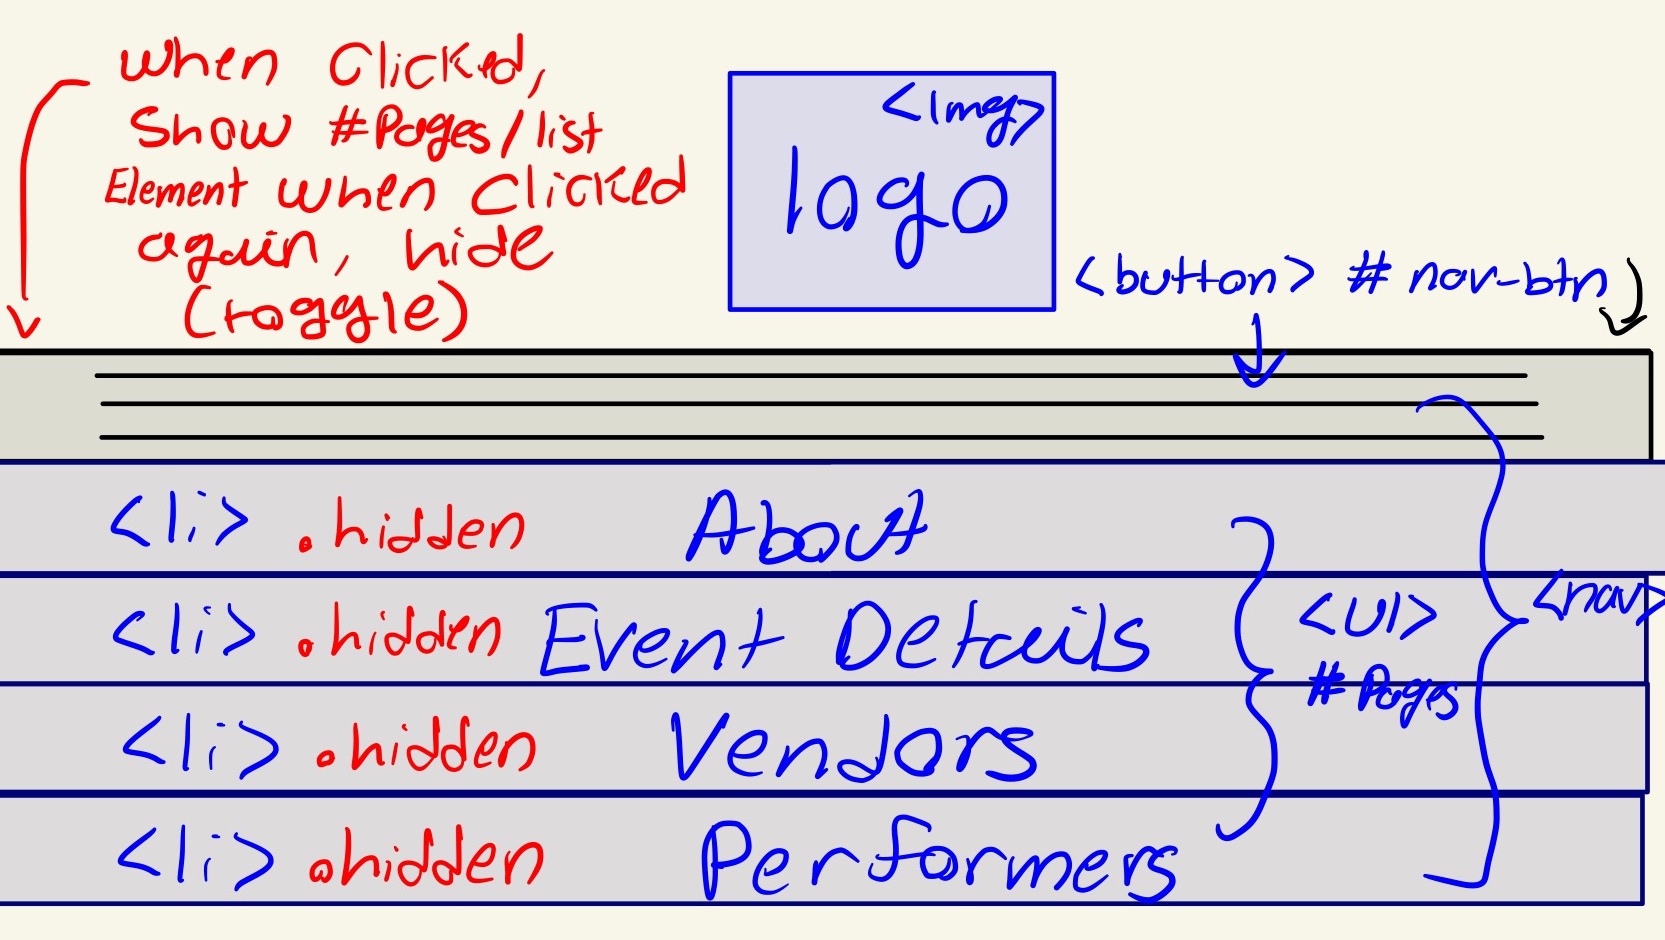 when Clicked,
Show #Pages/list
Element when Clicked
again, hide
(toggle)
<Img>
logo
<button> # nav-btn
<li> .hidden About
<li> .hidden Event Details
<li> .hidden Vendors
<li> .hidden Performers
<Ul>
# Pages
<nav>